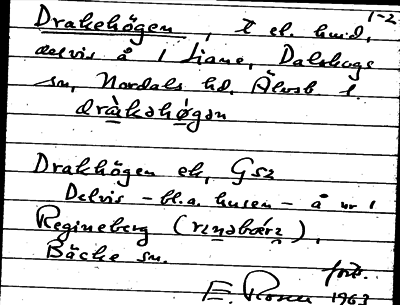 1-2
Drakehögen, X el. hmd,
delvis å 1 Liane, Dalskogs
sn, Nordals hd, Älvsb l.
dràkəhøgən
Drakhögen ek, Gsz
Delvis - bl.a. husen - å nr 1
Regineberg (rɪnəbærɪ),
Bäcke sn.
forts.
E. Rosen 1963